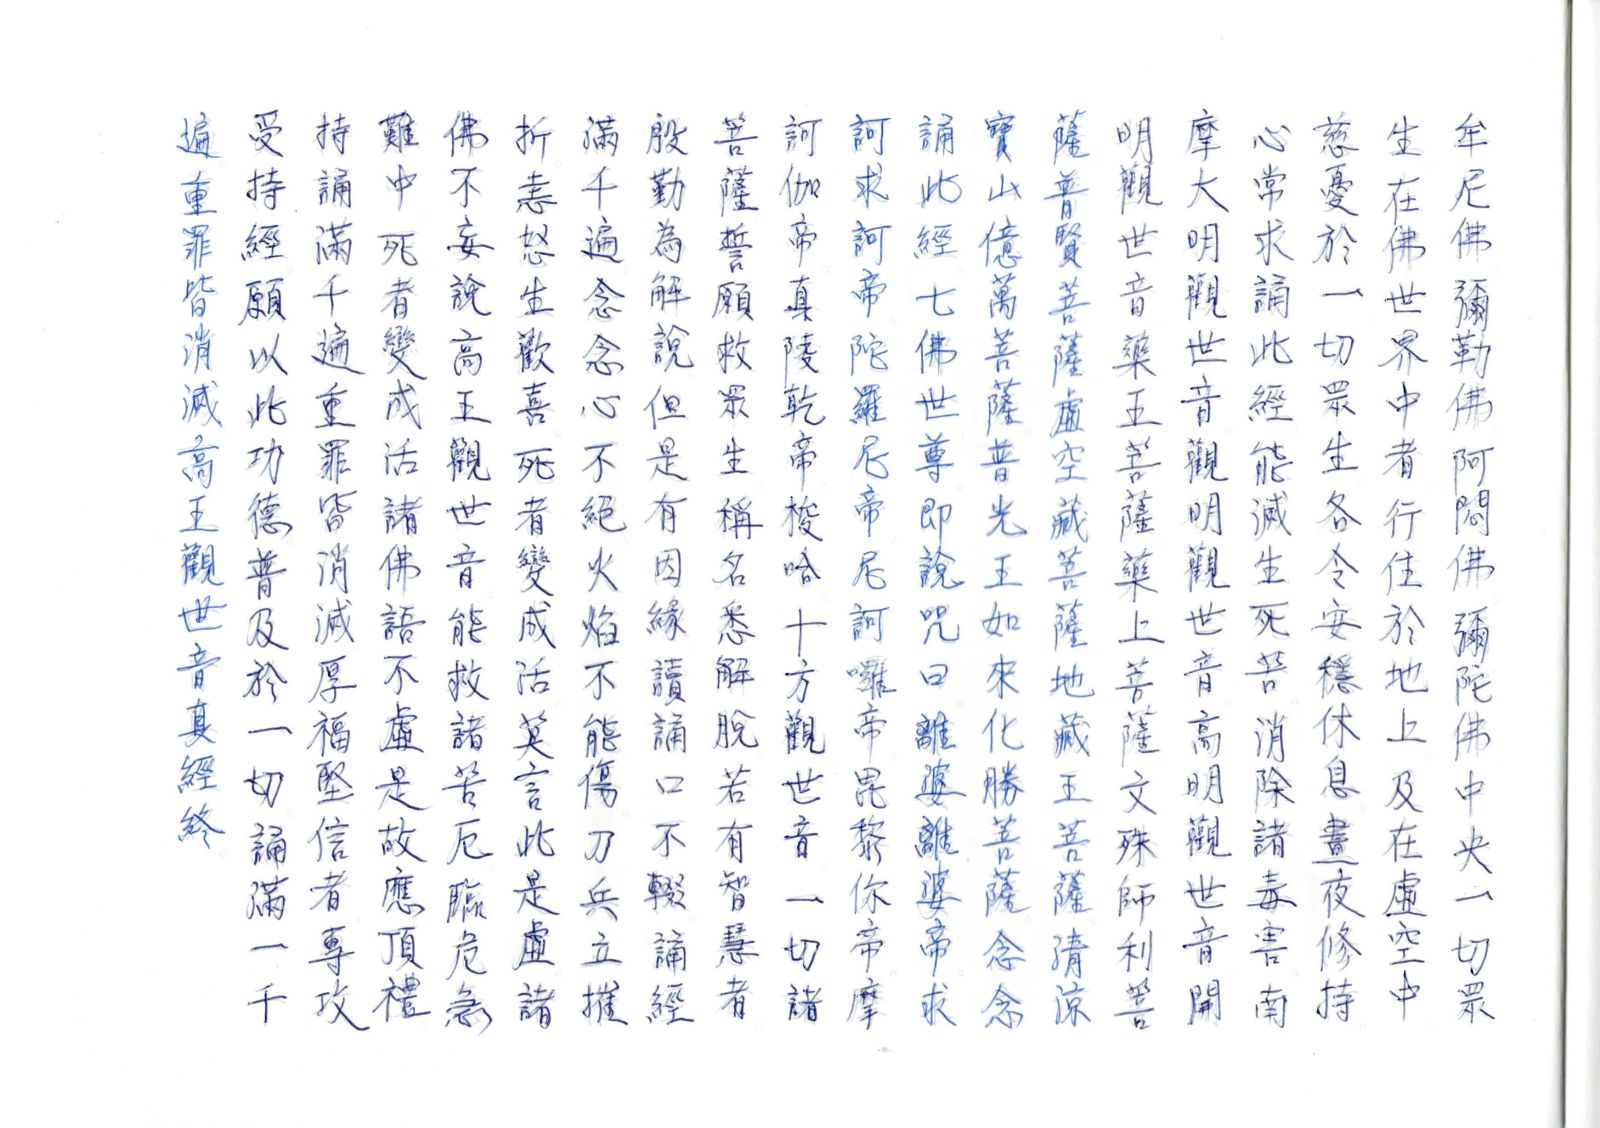 牟尼佛彌勒佛阿閦佛彌陀佛中央一切眾
生在佛世界中者行住於地上及在虛空中
慈憂於一切眾生各令安穩休息晝夜修持
心常求誦此經能滅生死苦消除諸毒害南
摩大明觀世音觀明觀世音高明觀世音開
明觀世音藥王菩薩藥上菩薩文殊師利菩
薩普賢菩薩虛空藏菩薩地藏王菩薩清涼
寶山億萬菩薩普光王如來化勝菩薩念念
誦此經七佛世尊即說咒曰離婆離婆帝求
訶求訶帝陀羅尼帝尼訶囉帝毘黎你帝摩
訶伽帝真陵乾帝梭哈十方觀世音一切諸
菩薩誓願救眾生稱名悉解脫若有智慧者
殷勤為解說但是有因緣讀誦口不輟誦經
滿千遍念念心不絕火焰不能傷刀兵立摧
折恚怒生歡喜死者變成活莫言此是虛諸
佛不妄說高王觀世音能救諸苦厄臨危急
難中死者變成活諸佛語不虛是故應頂禮
持誦滿千遍重罪皆消滅厚福堅信者專攻
受持經願以此功德普及於一切誦滿一千
遍重罪皆消滅高王觀世音真經終